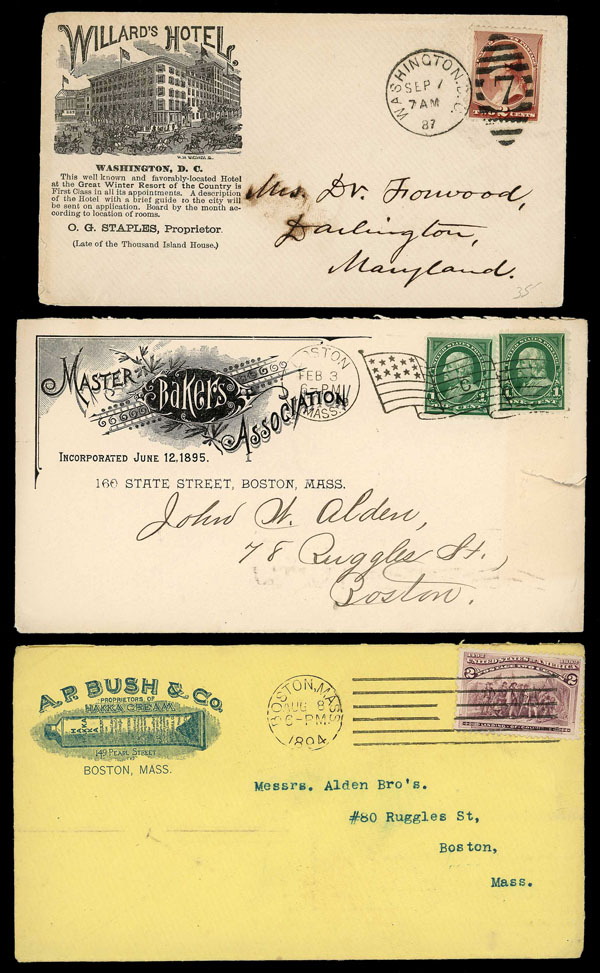 WILLARD'S HOTEL.
WASHINGTON, D. C.
This well known and favorably-located Hotel
at the Great Winter Resort of the Country is
First Class in all its appointments. A description
of the Hotel with a brief guide to the city will
be sent on application. Board by the month ac-
cording to location of rooms.
O. G. STAPLES, Proprietor.
(Late of the Thousand Island House.)
WASHINGTON, D.C.
SEP 7
7 AM
87
7
TWO 2 CENTS
Mrs. Dr. Ironwood,
Darlington,
Maryland.
35
MASTER
BAKERS
ASSOCIATION
INCORPORATED JUNE 12, 1895.
166 STATE STREET, BOSTON, MASS.
BOSTON
FEB 3
6-PM
MASS.
1 ONE CENT 1
ONE CENT 1
John W. Alden,
78 Ruggles St.,
Boston.
A.P. BUSH & CO.
PROPRIETORS OF
HAKKA CREAM.
HAKKA
149 PEARL STREET
BOSTON, MASS.
BOSTON, MASS
AUG 8
6-PM
1894
1492 1892
UNITED STATES OF AMERICA
2 POSTAGE TWO CENTS 2
LANDING OF COLUMBUS
Messrs. Alden Bro's.
#80 Ruggles St,
Boston,
Mass.